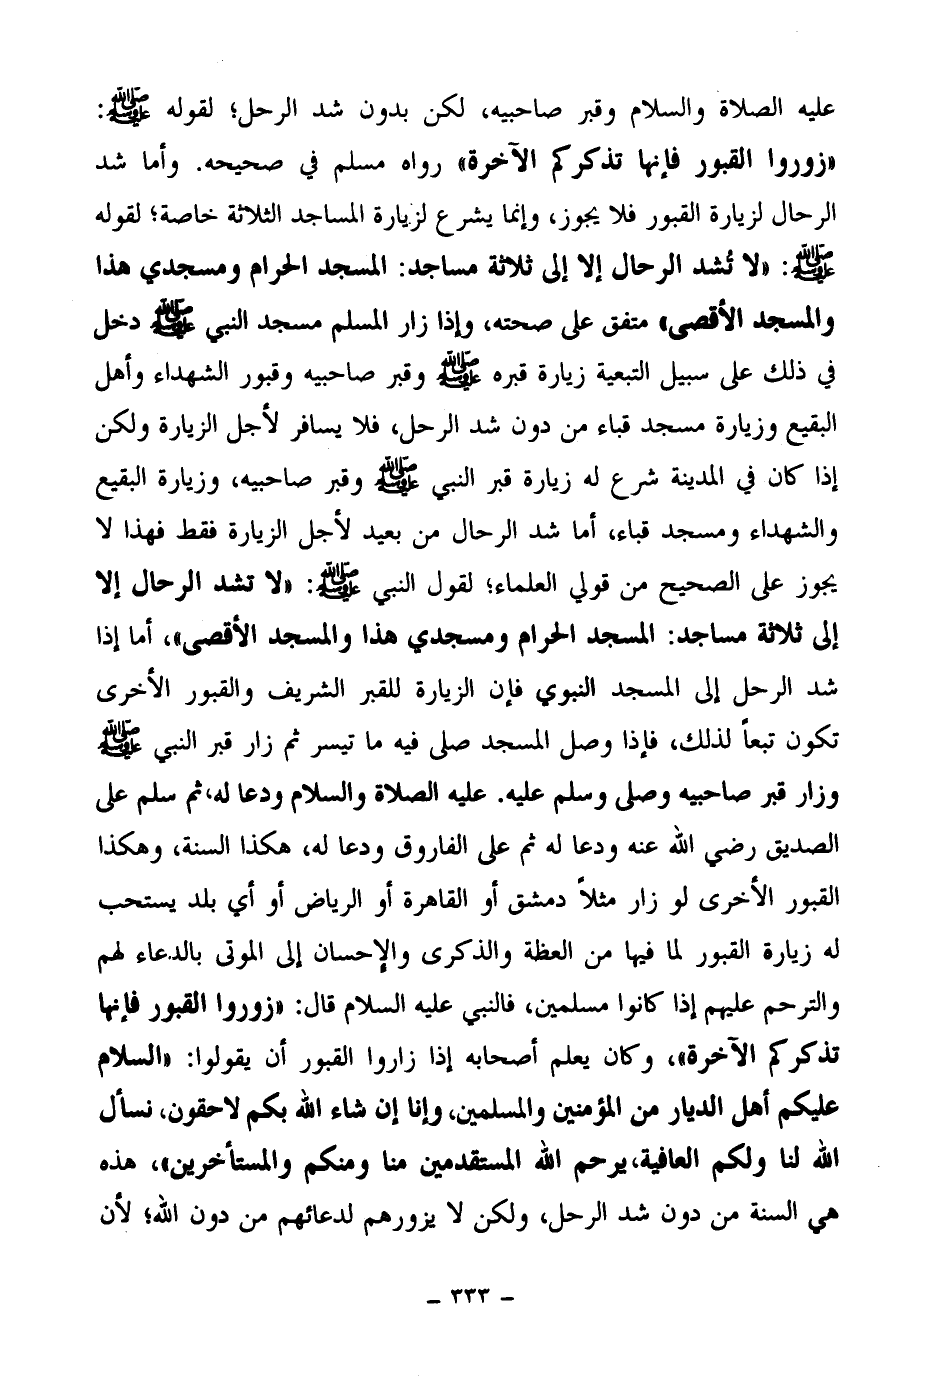 عليه الصلاة والسلام وقبر صاحبيه، لكن بدون شد الرحل؛ لقوله ﷺ:
«زوروا القبور فإنها تذكركم الآخرة» رواه مسلم في صحيحه. وأما شد
الرحال لزيارة القبور فلا يجوز، وإنما يشرع لزيارة المساجد الثلاثة خاصة؛ لقوله
ﷺ: «لا تُشد الرحال إلا إلى ثلاثة مساجد: المسجد الحرام ومسجدي هذا
والمسجد الأقصى» متفق على صحته، وإذا زار المسلم مسجد النبي ﷺ دخل
في ذلك على سبيل التبعية زيارة قبره ﷺ وقبر صاحبيه وقبور الشهداء وأهل
البقيع وزيارة مسجد قباء من دون شد الرحل، فلا يسافر لأجل الزيارة ولكن
إذا كان في المدينة شرع له زيارة قبر النبي ﷺ وقبر صاحبيه، وزيارة البقيع
والشهداء ومسجد قباء، أما شد الرحال من بعيد لأجل الزيارة فقط فهذا لا
يجوز على الصحيح من قولي العلماء؛ لقول النبي ﷺ: «لا تشد الرحال إلا
إلى ثلاثة مساجد: المسجد الحرام ومسجدي هذا والمسجد الأقصى»، أما إذا
شد الرحل إلى المسجد النبوي فإن الزيارة للقبر الشريف والقبور الأخرى
تكون تبعاً لذلك، فإذا وصل المسجد صلى فيه ما تيسر ثم زار قبر النبي ﷺ
وزار قبر صاحبيه وصلى وسلم عليه. عليه الصلاة والسلام ودعا له، ثم سلم على
الصديق رضي الله عنه ودعا له ثم على الفاروق ودعا له، هكذا السنة، وهكذا
القبور الأخرى لو زار مثلاً دمشق أو القاهرة أو الرياض أو أي بلد يستحب
له زيارة القبور لما فيها من العظة والذكرى والإحسان إلى الموتى بالدعاء لهم
والترحم عليهم إذا كانوا مسلمين، فالنبي عليه السلام قال: «زوروا القبور فإنها
تذكركم الآخرة»، وكان يعلم أصحابه إذا زاروا القبور أن يقولوا: «السلام
عليكم أهل الديار من المؤمنين والمسلمين، وإنا إن شاء الله بكم لاحقون، نسأل
الله لنا ولكم العافية، يرحم الله المستقدمين منا ومنكم والمستأخرين»، هذه
هي السنة من دون شد الرحل، ولكن لا يزورهم لدعائهم من دون الله؛ لأن
ـ ٣٣٣ ـ